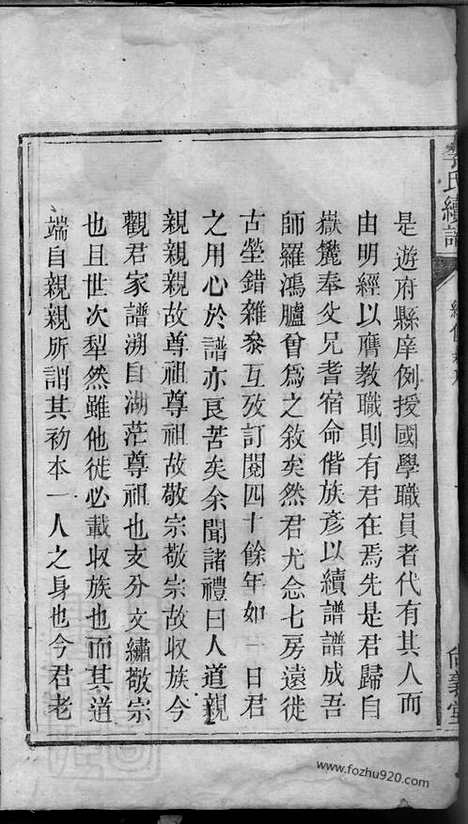 氏續譜
是遊府縣庠例授國學職員者代有其人而
由明經以膺教職則有君在焉先是君歸自
嶽麓奉父兄耆宿命偕族彥以續譜譜成吾
師羅鴻臚曾爲之敘矣然君尤念七房遠徙
古塋錯雜叅互攷訂閱四十餘年如一日君
之用心於譜亦良苦矣余聞諸禮曰人道親
親親親故尊祖尊祖故敬宗敬宗故收族今
觀君家譜溯自湖茫尊祖也支分文繡敬宗
也且世次犁然雖他徙必載収族也而其道
端自親親所謂其初本一人之身也今君老
www.fozhu920.com